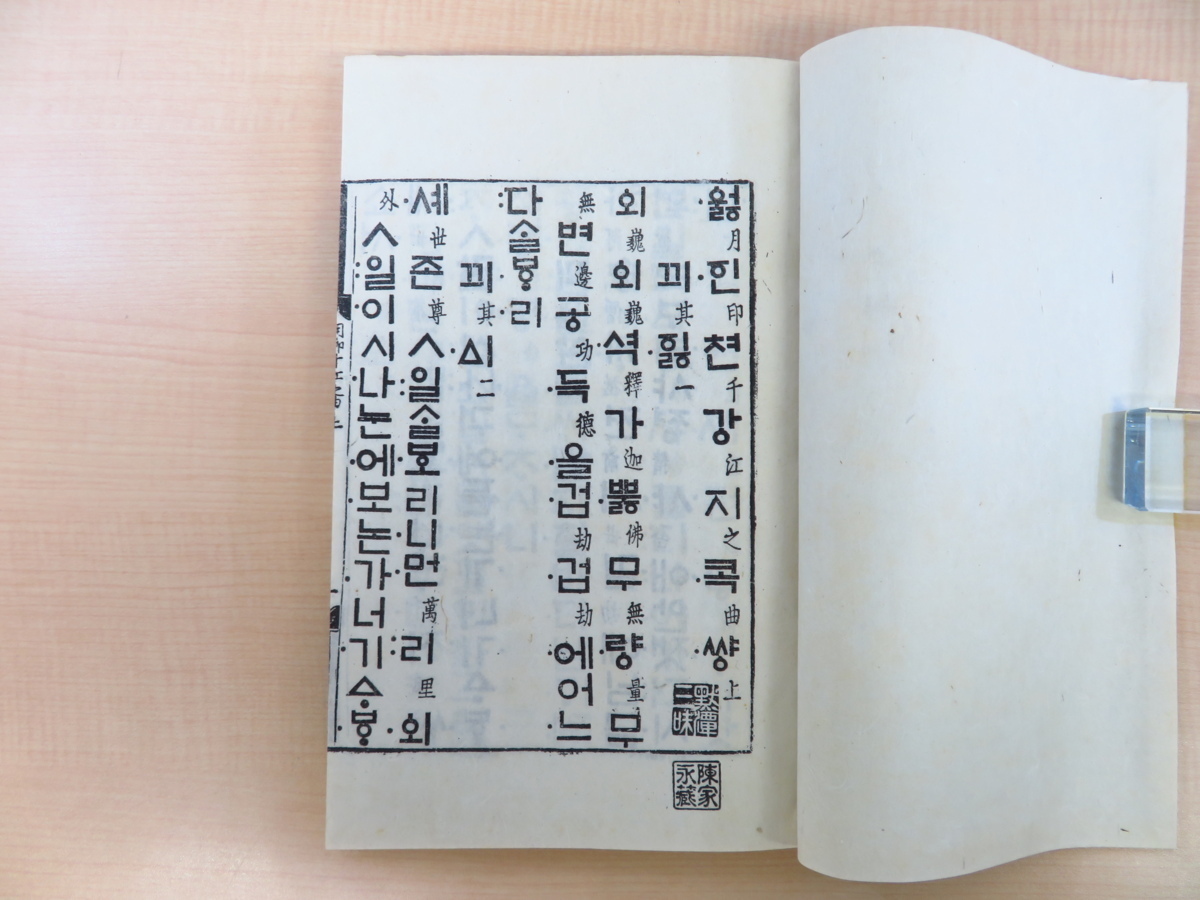 ·ᅌᅯᇙ月·ᅙᅵᆫ印쳔千강江지之·콕曲·쌰ᇰ上
끠其·ᅙᅵᇙ一
외巍외巍·셕釋가迦·뿌ᇙ佛무無·량量무
無변邊공功·득德·을·겁劫·겁劫·에어·느
:다ᄉᆞᆯᄫᆞ·리
끠其·ᅀᅵ二
·셰世존尊ㅅ:일ᄉᆞᆯᄫᅩ·리·니·먼萬:리里·외
外ㅅ:일이시·나·눈·에·보논·가너·기ᅀᆞ·ᄫᆞ
默潭三昧
陳家永藏